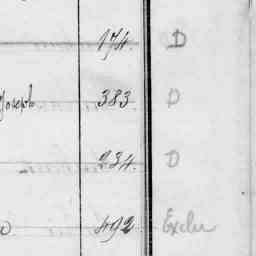 174. D
Joseph 383. D
234. D
492. Exclu